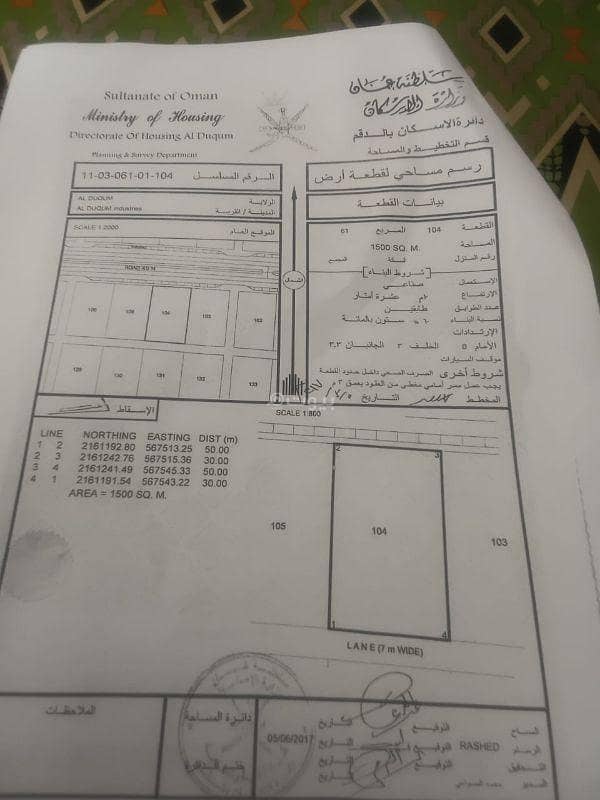 سلطنة عمان
وزارة الإسكان
Sultanate of Oman
Ministry of Housing
Directorate Of Housing Al Duqum
Planning & Survey Department
دائرة الاسكان بالدقم
قسم التخطيط والمساحة
11-03-061-01-104 الرقم المسلسل
رسم مساحي لقطعة أرض
AL DUQUM الولاية
AL DUQUM industries المدينة / القرية
بيانات القطعة
SCALE 1:2000 الموقع العام
القطعة 104 المربع 61
المساحة 1500 SQ. M.
رقم المنزل
شروط البناء
الاستعمال صناعي
الارتفاع عشرة أمتار
عدد الطوابق طابقين
نسبة البناء ستون بالمائة
الإرتدادات
الأمام 5 الخلف 3 الجانبان 3,3
موقف السيارات
شروط أخرى الصرف الصحي داخل حدود القطعة
المخطط التاريخ
الشمال
ROAD
106 105 104 103 102
129 130 131 132 133
الإسقاط
SCALE 1:800
LINE NORTHING EASTING DIST (m)
1 2 2161192.80 567513.25 50.00
2 3 2161242.76 567515.36 30.00
3 4 2161241.49 567545.33 50.00
4 1 2161191.54 567543.22 30.00
AREA = 1500 SQ. M.
2 3
105 104 103
1 4
LANE (7 m WIDE)
الملاحظات
دائرة المساحة
ختم الدائرة
05/06/2017
المساح التوقيع التاريخ
الرسام RASHED التوقيع التاريخ
التدقيق التوقيع التاريخ
المدير